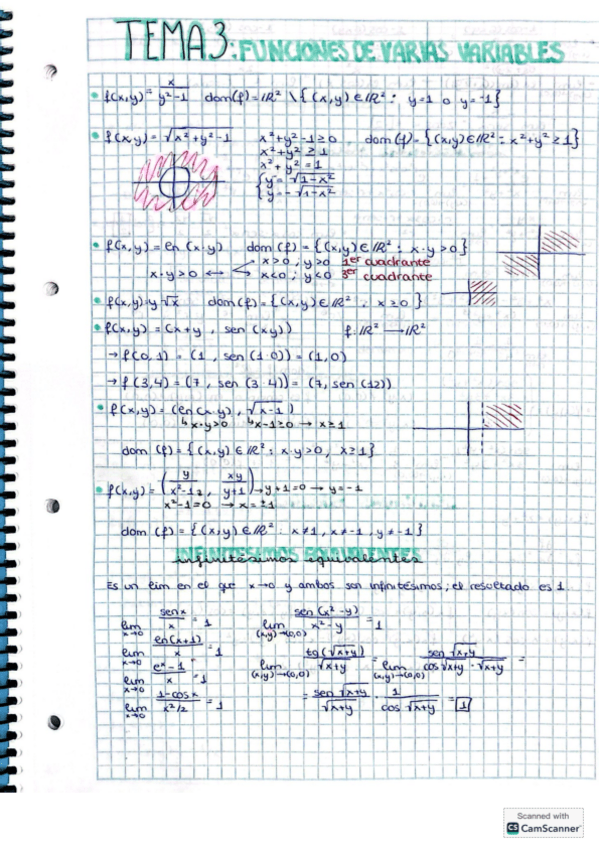 TEMA 3: FUNCIONES DE VARIAS VARIABLES
• f(x,y) = x / y²-1   dom(f) = IR² \ { (x,y) ∈ IR² : y=1 o y=-1 }
• f(x,y) = √x²+y²-1   x²+y²-1 ≥ 0   dom(f) = { (x,y) ∈ IR² : x²+y² ≥ 1 }
x²+y² ≥ 1
x²+y² = 1
{ y = √1-x²
y = -√1-x²
• f(x,y) = ln (x·y)   dom (f) = { (x,y) ∈ IR² : x·y > 0 }
x·y > 0 ↔ x>0 ; y>0 1er cuadrante
x<0 ; y<0 3er cuadrante
• f(x,y) = y √x   dom(f) = { (x,y) ∈ IR² : x ≥ 0 }
• f(x,y) = (x+y , sen (xy))   f: IR² → IR²
→ f(0,1) = (1 , sen (1·0)) = (1,0)
→ f(3,4) = (7 , sen (3·4)) = (7, sen (12))
• f(x,y) = (ln(x·y) , √x-1 )
↳ x·y>0   ↳ x-1≥0 → x≥1
dom (f) = { (x,y) ∈ IR² : x·y>0 , x≥1 }
• f(x,y) = ( y / x²-1 , xy / y+1 ) → y+1=0 → y=-1
x²-1=0 → x=±1
dom (f) = { (x,y) ∈ IR² : x≠1 , x≠-1 , y≠-1 }
INFINITÉSIMOS EQUIVALENTES
infinitésimos equivalentes
Es un lim en el que x→0 y ambos son infinitésimos; el resultado es 1.
lim x→0 senx / x = 1   lim (x,y)→(0,0) sen (x²-y) / x²-y = 1
lim x→0 ln(x+1) / x = 1   lim (x,y)→(0,0) tg(√x+y) / √x+y = lim (x,y)→(0,0) sen √x+y / cos √x+y · √x+y =
lim x→0 eˣ-1 / x = 1
lim x→0 1-cosx / x²/2 = 1   = sen √x+y / √x+y · 1 / cos √x+y = 1
Scanned with
CS CamScanner